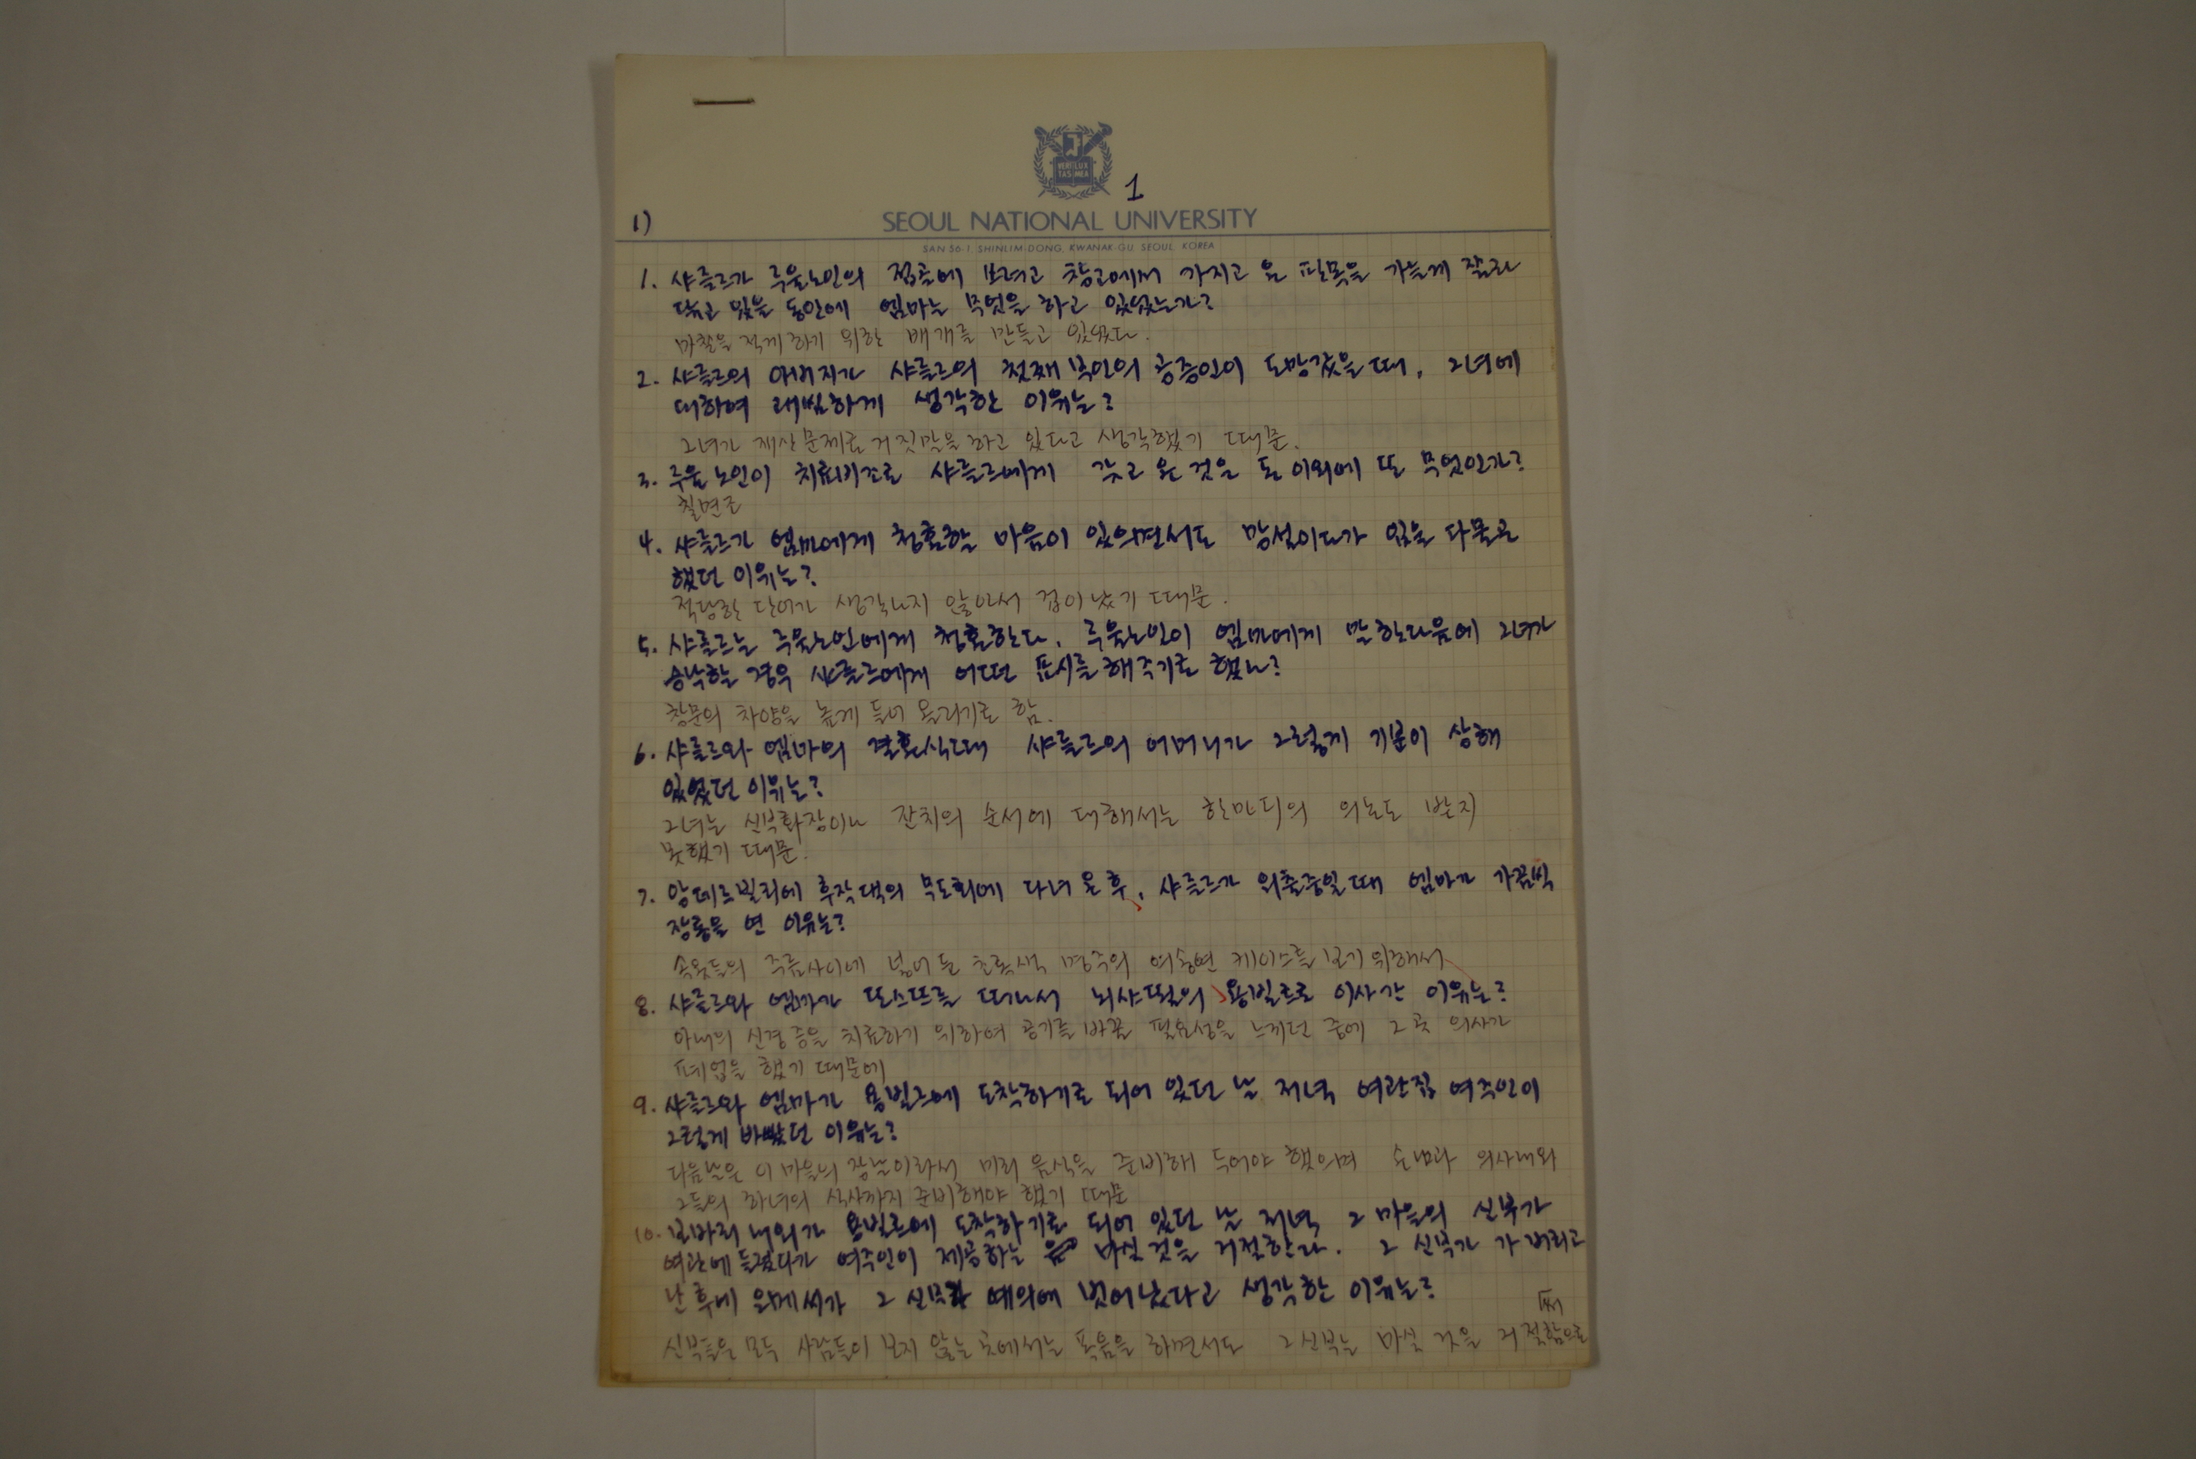 VERI LUX
TAS MEA
1
1)
SEOUL NATIONAL UNIVERSITY
SAN 56-1, SHINLIM-DONG, KWANAK-GU, SEOUL, KOREA
1. 샤를르가 루울노인의 접골에 쓰려고 창고에서 가지고 온 판목을 가늘게 잘라
닦고 있을 동안에 엠마는 무엇을 하고 있었는가?
마찰을 적게 하기 위한 베개를 만들고 있었다.
2. 샤를르의 아버지가 샤를르의 첫째 부인의 공증인이 도망갔을 때, 그녀에
대하여 괘씸하게 생각한 이유는?
그녀가 재산문제로 거짓말을 하고 있다고 생각했기 때문.
3. 루울노인이 치료비조로 샤를르에게 갖고 온 것은 돈 이외에 또 무엇인가?
칠면조
4. 샤를르가 엠마에게 청혼할 마음이 있으면서도 망설이다가 입을 다물곤
했던 이유는?
적당한 단어가 생각나지 않아서 겁이 났기 때문.
5. 샤를르는 루울노인에게 청혼한다. 루울노인이 엠마에게 말한다음에 그녀가
승낙할 경우 샤를르에게 어떤 표시를 해주기로 했나?
창문의 차양을 높게 들어 올리기로 함.
6. 샤를르와 엠마의 결혼식때 샤를르의 어머니가 그렇게 기분이 상해
있었던 이유는?
그녀는 신부화장이나 잔치의 순서에 대해서는 한마디의 의논도 받지
못했기 때문.
7. 앙데르빌리에 후작댁의 무도회에 다녀온 후, 샤를르가 외출중일때 엠마가 가끔씩
장롱을 연 이유는?
속옷들의 주름사이에 넣어둔 초록색 명주의 여송연 케이스를 보기 위해서
8. 샤를르와 엠마가 또스뜨를 떠나서 뇌샤뗄의 용빌르로 이사간 이유는?
아내의 신경증을 치료하기 위하여 공기를 바꿀 필요성을 느끼던 중에 그 곳 의사가
폐업을 했기 때문에
9. 샤를르와 엠마가 용빌르에 도착하기로 되어 있던 날 저녁 여관집 여주인이
그렇게 바빴던 이유는?
다음날은 이 마을의 장날이라서 미리 음식을 준비해 두어야 했으며 손님과 의사내외
그들의 하녀의 식사까지 준비해야 했기 때문
10. 보바리 내외가 용빌르에 도착하기로 되어 있던 날 저녁 그 마을의 신부가
여관에 들렀다가 여주인이 제공하는 마실 것을 거절한다. 그 신부가 가버리고
난 후에 오메씨가 그 신부가 예의에 벗어났다고 생각한 이유는?
신부들은 모두 사람들이 보지 않는 곳에서는 폭음을 하면서도 그 신부는 마실 것을 거절함으로
써